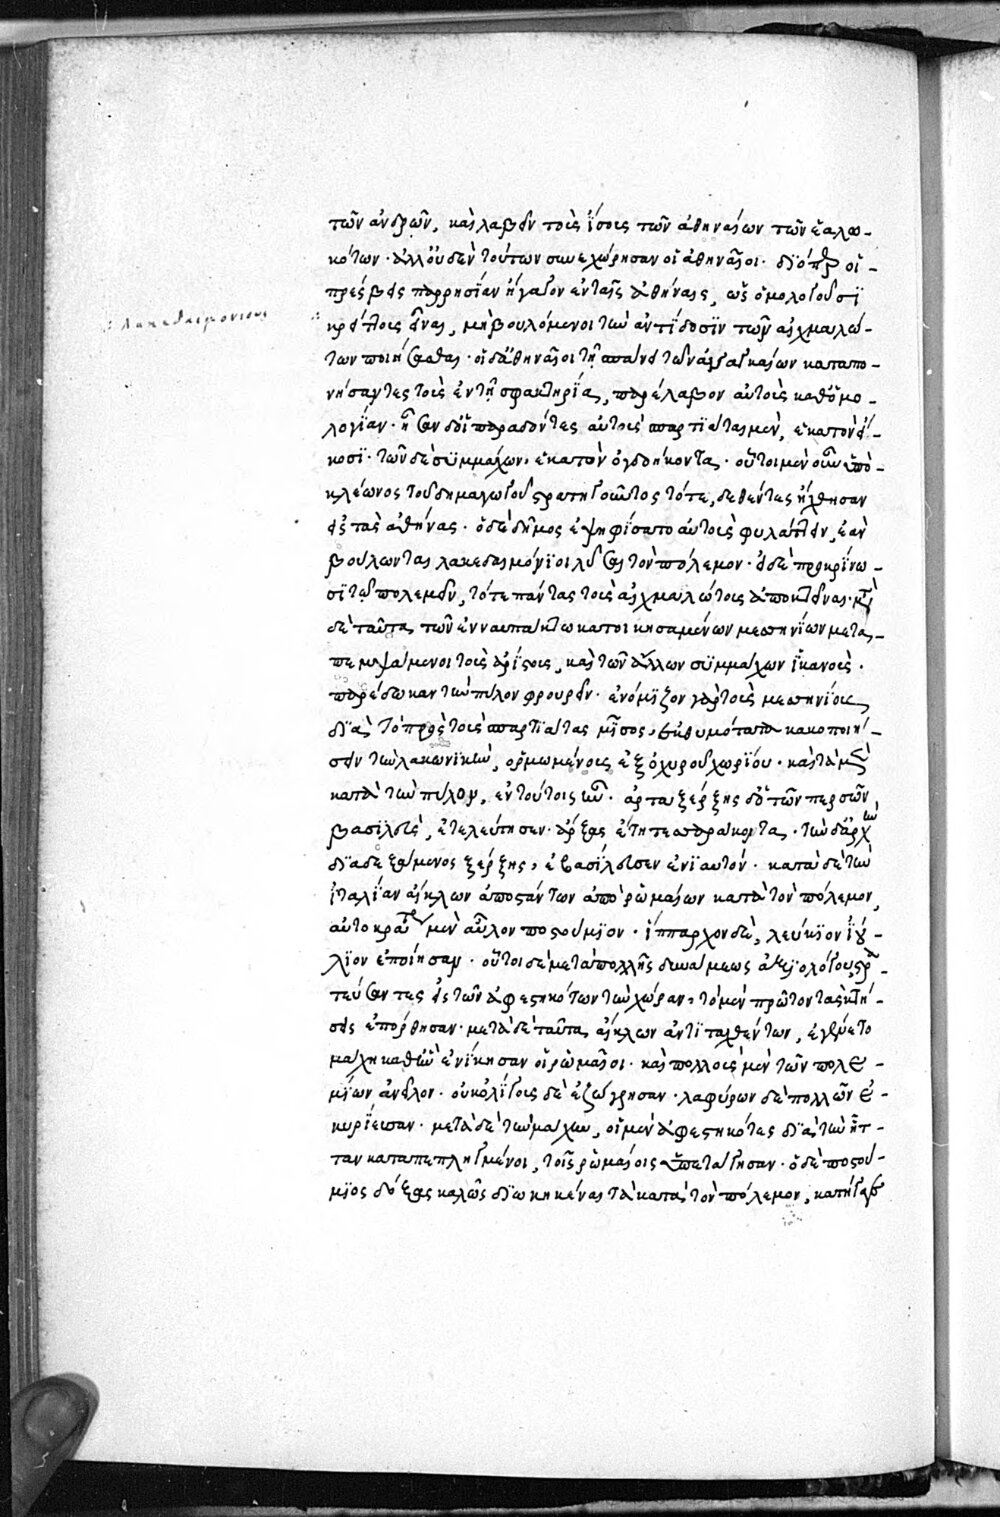 τῶν ἀνδρῶν, καὶ λαβεῖν τοὺς ἴσους τῶν ἀθηναίων τῶν ἑαλω-
κότων· ἀλλ' οὐδὲν τούτων συνεχώρησαν οἱ ἀθηναῖοι· διόπερ οἱ -
πρέσβεις παρρησίαν ἤγαγον ἐν ταῖς ἀθήναις, ὡς ὁμολογοῦσι
λακεδαιμονίους
κρείττους εἶναι, μὴ βουλόμενοι τὴν ἀντίδοσιν τῶν αἰχμαλώ-
των ποιήσασθαι· οἱ δ' ἀθηναῖοι τῇ σπάνει τῶν ἀναγκαίων καταπο-
νήσαντες τοὺς ἐν τῇ σφακτηρίᾳ, παρέλαβον αὐτοὺς καθ' ὁμο-
λογίαν· ἦσαν δ' οἱ παραδόντες αὑτοὺς σπαρτιάται μὲν, ἑκατὸν εἴ-
κοσι· τῶν δὲ συμμάχων, ἑκατὸν ὀγδοήκοντα· οὗτοι μὲν οὖν ὑπὸ-
κλέωνος τοῦ δημαγωγοῦ στρατηγοῦντος τότε, δεθέντες ἤχθησαν
εἰς τὰς ἀθήνας· ὁ δὲ δῆμος ἐψηφίσατο αὐτοὺς φυλάττειν, ἐὰν
βούλωνται λακεδαιμόνιοι λῦσαι τὸν πόλεμον· εἰ δὲ προκρίνω-
σι τὸ πολεμεῖν, τότε πάντας τοὺς αἰχμαλώτους ἀποκτεῖναι· μετὰ
δὲ ταῦτα τῶν ἐν ναυπάκτω κατοικησαμένων μεσσηνίων μετα-
πεμψάμενοι τοὺς ἀρίστους, καὶ τῶν ἄλλων συμμάχων ἱκανοὺς·
παρέδωκαν τὴν πύλον φρουρεῖν· ἐνόμιζον γὰρ τοὺς μεσσηνίους
διὰ τὸ πρὸς τοὺς σπαρτιάτας μῖσος, ἐκθυμότατα κακοποιή-
σειν τὴν λακωνικὴν, ὁρμωμένους ἐξ ὀχυροῦ χωρίου· καὶ τὰ μὲν
κατὰ τὴν πύλον, ἐν τούτοις ἦν· ἀρταξέρξης δ' ὁ τῶν περσῶν
βασιλεὺς, ἐτελεύτησεν· ἄρξας ἔτη τεσσαράκοντα· τὴν δ' ἀρχὴν
διαδεξάμενος ξέρξης, ἐβασίλευσεν ἐνιαυτόν· κατὰ δὲ τὴν
ἰταλίαν αἴκλων ἀποστάντων ἀπὸ ῥωμαίων κατὰ τὸν πόλεμον,
αὐτοκράτορα μὲν αὖλον ποστούμιον· ἵππαρχον δὲ, λεύκιον ἰού-
λιον ἐποίησαν· οὗτοι δὲ μετὰ πολλῆς δυνάμεως ἀξιολόγου στρα-
τεύσαντες εἰς τῶν ἀφεστηκότων τὴν χώραν, τὸ μὲν πρῶτον τὰς κτή-
σεις ἐπόρθησαν· μετὰ δὲ ταῦτα αἴκλων ἀντιταχθέντων, ἐγένετο
μάχη καθ' ἣν ἐνίκησαν οἱ ῥωμαῖοι· καὶ πολλοὺς μὲν τῶν πολε-
μίων ἀνεῖλον· οὐκ ὀλίγους δὲ ἐζώγρησαν· λαφύρων δὲ πολλῶν ἐ-
κυρίευσαν· μετὰ δὲ τὴν μάχην, οἱ μὲν ἀφεστηκότες διὰ τὴν ἧτ-
ταν καταπεπληγμένοι, τοῖς ῥωμαίοις ὑπετάγησαν· ὁ δὲ ποστού-
μιος δόξας καλῶς διωκηκέναι τὰ κατὰ τὸν πόλεμον, κατήγαγε